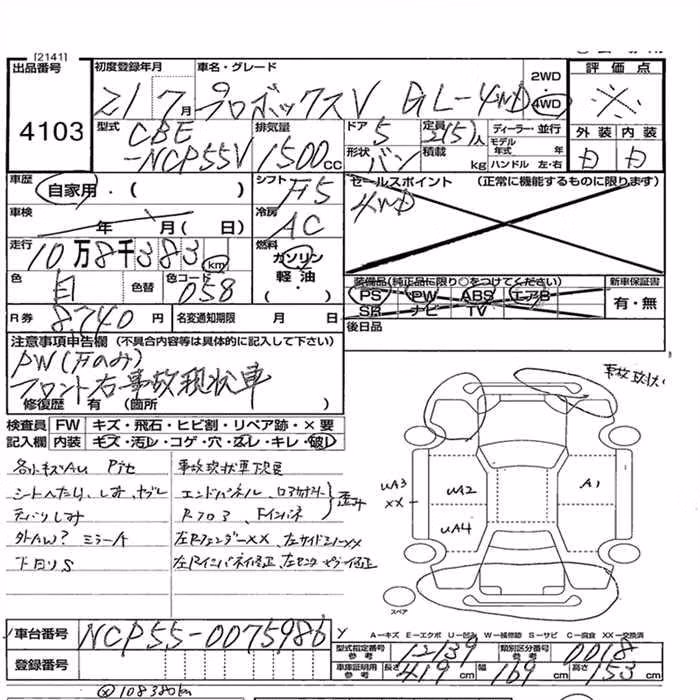 [2141]
出品番号
4103
初度登録年月
21 7月
車名・グレード
プロボックスV GL-4WD
2WD
4WD
評価点
※
外装 内装
型式
CBE
-NCP55V
排気量
1500cc
ドア 5
形状 バン
定員 2(5)人
積載 kg
ディーラー・並行
モデル年式 年
ハンドル 左・右
車歴
自家用・( )
シフト F5
セールスポイント (正常に機能するものに限ります)
4WD
車検
年 月( 日)
冷房
AC
走行
10万8千383 km
燃料
ガソリン
軽油
( ・ )
色
色替
色コード
058
装備品(純正品に限り○をつけてください)
PS PW ABS エアB
SR ナビ TV
新車保証書
有・無
R券 8,740円
名変通知期限 月 日
後日品
注意事項申告欄 (不具合内容等は具体的に記入して下さい)
PW(Fのみ)
フロント右事故現状車
修復歴 有 (箇所 )
事故現状
検査員記入欄
FW キズ・飛石・ヒビ割・リペア跡・×要
内装 キズ・汚レ・コゲ・穴・スレ・キレ・破レ
各小キズAU
事故現状車
シートへたり、しみ、ヤブレ
エンドパネル
しみ
外AW? ミラーA
左Rフェンダーxx
下回りS
左Rインパネ修正
UA3
XX
UA2
UA4
A1
スペア
A-キズ E-エクボ U-凹み W-補修跡 S-サビ C-腐食 XX-交換済
車台番号 NCP55-0075986
登録番号
型式指定番号 参考 12139
類別区分番号 参考 0018
車庫証明用 参考 長さ 419cm 幅 169cm 高さ 153cm
108386km